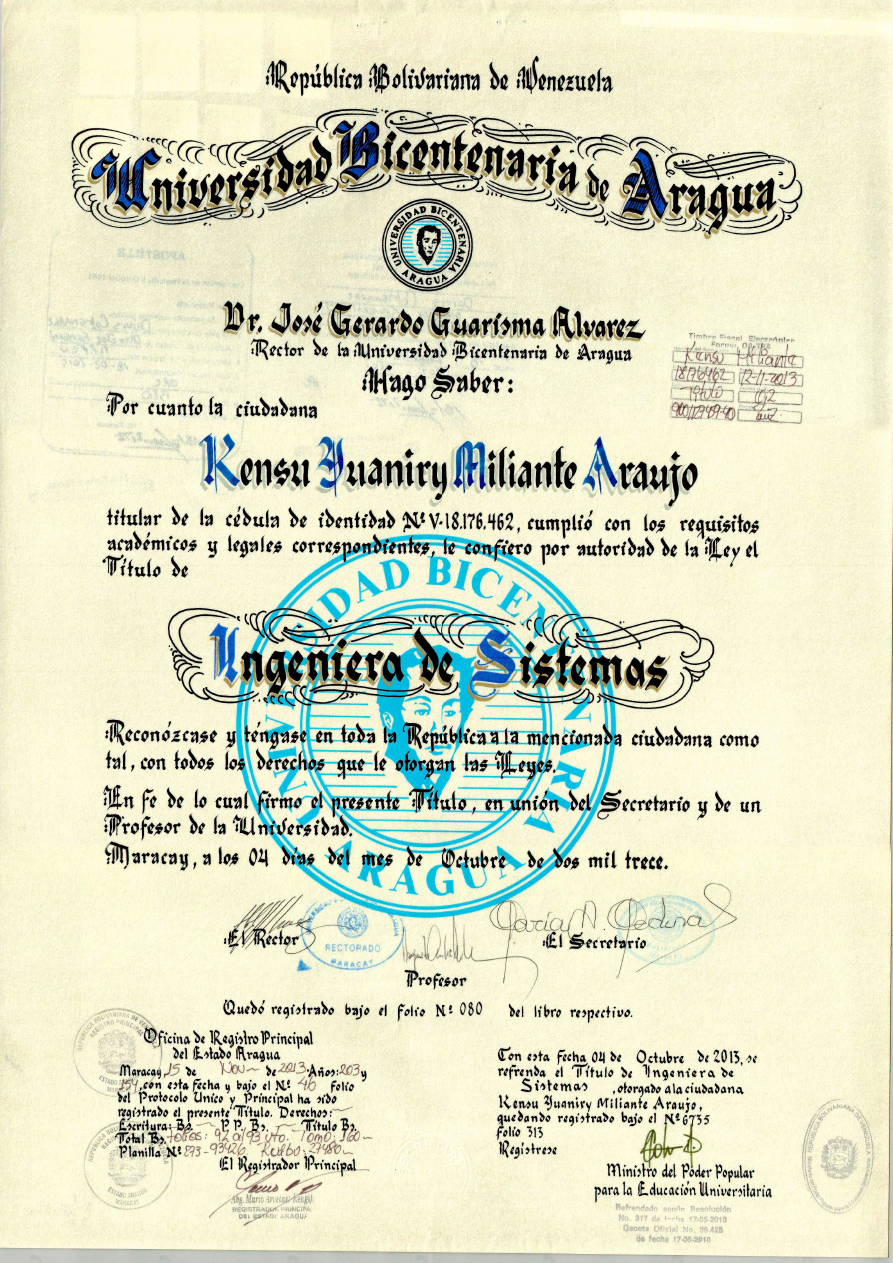 República Bolivariana de Venezuela
Universidad Bicentenaria de Aragua
UNIVERSIDAD BICENTENARIA
ARAGUA
Dr. José Gerardo Guarisma Alvarez
Rector de la Universidad Bicentenaria de Aragua
Hago Saber:
Timbre Fiscal Electrónico
Kensu Miliante
18176462 12-11-2013
Titulo
Por cuanto la ciudadana
Kensu Yuaniry Miliante Araujo
titular de la cédula de identidad Nº V-18.176.462, cumplió con los requisitos
académicos y legales correspondientes, le confiero por autoridad de la Ley el
Título de
Ingeniera de Sistemas
UNIVERSIDAD BICENTENARIA
ARAGUA
Reconózcase y téngase en toda la República a la mencionada ciudadana como
tal, con todos los derechos que le otorgan las Leyes.
En fe de lo cual firmo el presente Título, en unión del Secretario y de un
Profesor de la Universidad.
Maracay, a los 04 días del mes de Octubre de dos mil trece.
El Rector
RECTORADO
MARACAY
El Secretario
Profesor
Quedó registrado bajo el folio Nº 080 del libro respectivo.
Oficina de Registro Principal
del Estado Aragua
Maracay, 15 de Nov de 2013. Años: 203 y
154, con esta fecha y bajo el Nº 46 folio
del Protocolo Unico y Principal ha sido
registrado el presente Título. Derechos:
Escritura: Bs. P.P. Bs. Título Bs.
Total Bs. folios: 92 al 93 vto. Tomo: 160
Planilla Nº 273-93426 Recibo: 27480
El Registrador Principal
REGISTRADOR PRINCIPAL
DEL ESTADO ARAGUA
Con esta fecha 04 de Octubre de 2013, se
refrenda el Título de Ingeniera de
Sistemas, otorgado a la ciudadana
Kensu Yuaniry Miliante Araujo,
quedando registrado bajo el Nº 6735
folio 313
Regístrese
Ministro del Poder Popular
para la Educación Universitaria
Refrendado según Resolución
No. 317 de fecha 17-05-2010
Gaceta Oficial No. 39.425
de fecha 17-05-2010